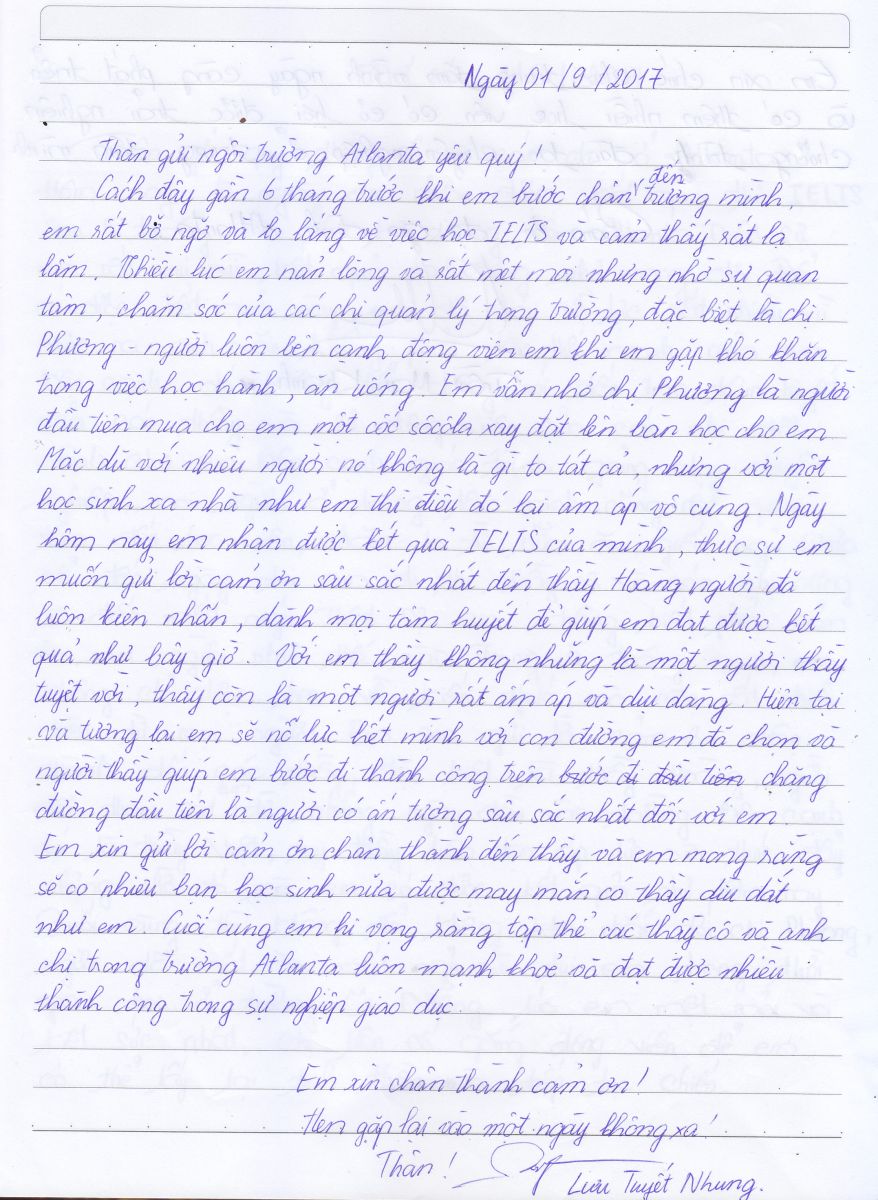 Ngày 01/9/2017
Thân gửi ngôi trường Atlanta yêu quý!
Cách đây gần 6 tháng trước khi em bước chân đến trường mình,
em rất bỡ ngỡ và lo lắng về việc học IELTS và cảm thấy rất lạ
lẫm. Nhiều lúc em nản lòng và rất mệt mỏi nhưng nhờ sự quan
tâm, chăm sóc của các chị quản lý trong trường, đặc biệt là chị
Phương - người luôn bên cạnh động viên em khi em gặp khó khăn
trong việc học hành, ăn uống. Em vẫn nhớ chị Phương là người
đầu tiên mua cho em một cốc sôcôla xay đặt lên bàn học cho em.
Mặc dù với nhiều người nó không là gì to tát cả, nhưng với một
học sinh xa nhà như em thì điều đó lại ấm áp vô cùng. Ngày
hôm nay em nhận được kết quả IELTS của mình, thực sự em
muốn gửi lời cám ơn sâu sắc nhất đến thầy Hoàng người đã
luôn kiên nhẫn, dành mọi tâm huyết để giúp em đạt được kết
quả như bây giờ. Với em thầy không những là một người thầy
tuyệt vời, thầy còn là một người rất ấm áp và dịu dàng. Hiện tại
và tương lai em sẽ nỗ lực hết mình với con đường em đã chọn và
người thầy giúp em bước đi thành công trên bước đi đầu tiên chặng
đường đầu tiên là người có ấn tượng sâu sắc nhất đối với em.
Em xin gửi lời cảm ơn chân thành đến thầy và em mong rằng
sẽ có nhiều bạn học sinh nữa được may mắn có thầy dìu dắt
như em. Cuối cùng em hi vọng rằng tập thể các thầy cô và anh
chị trong trường Atlanta luôn mạnh khoẻ và đạt được nhiều
thành công trong sự nghiệp giáo dục.
Em xin chân thành cảm ơn!
Hẹn gặp lại vào một ngày không xa!
Thân!
Lưu Tuyết Nhung.